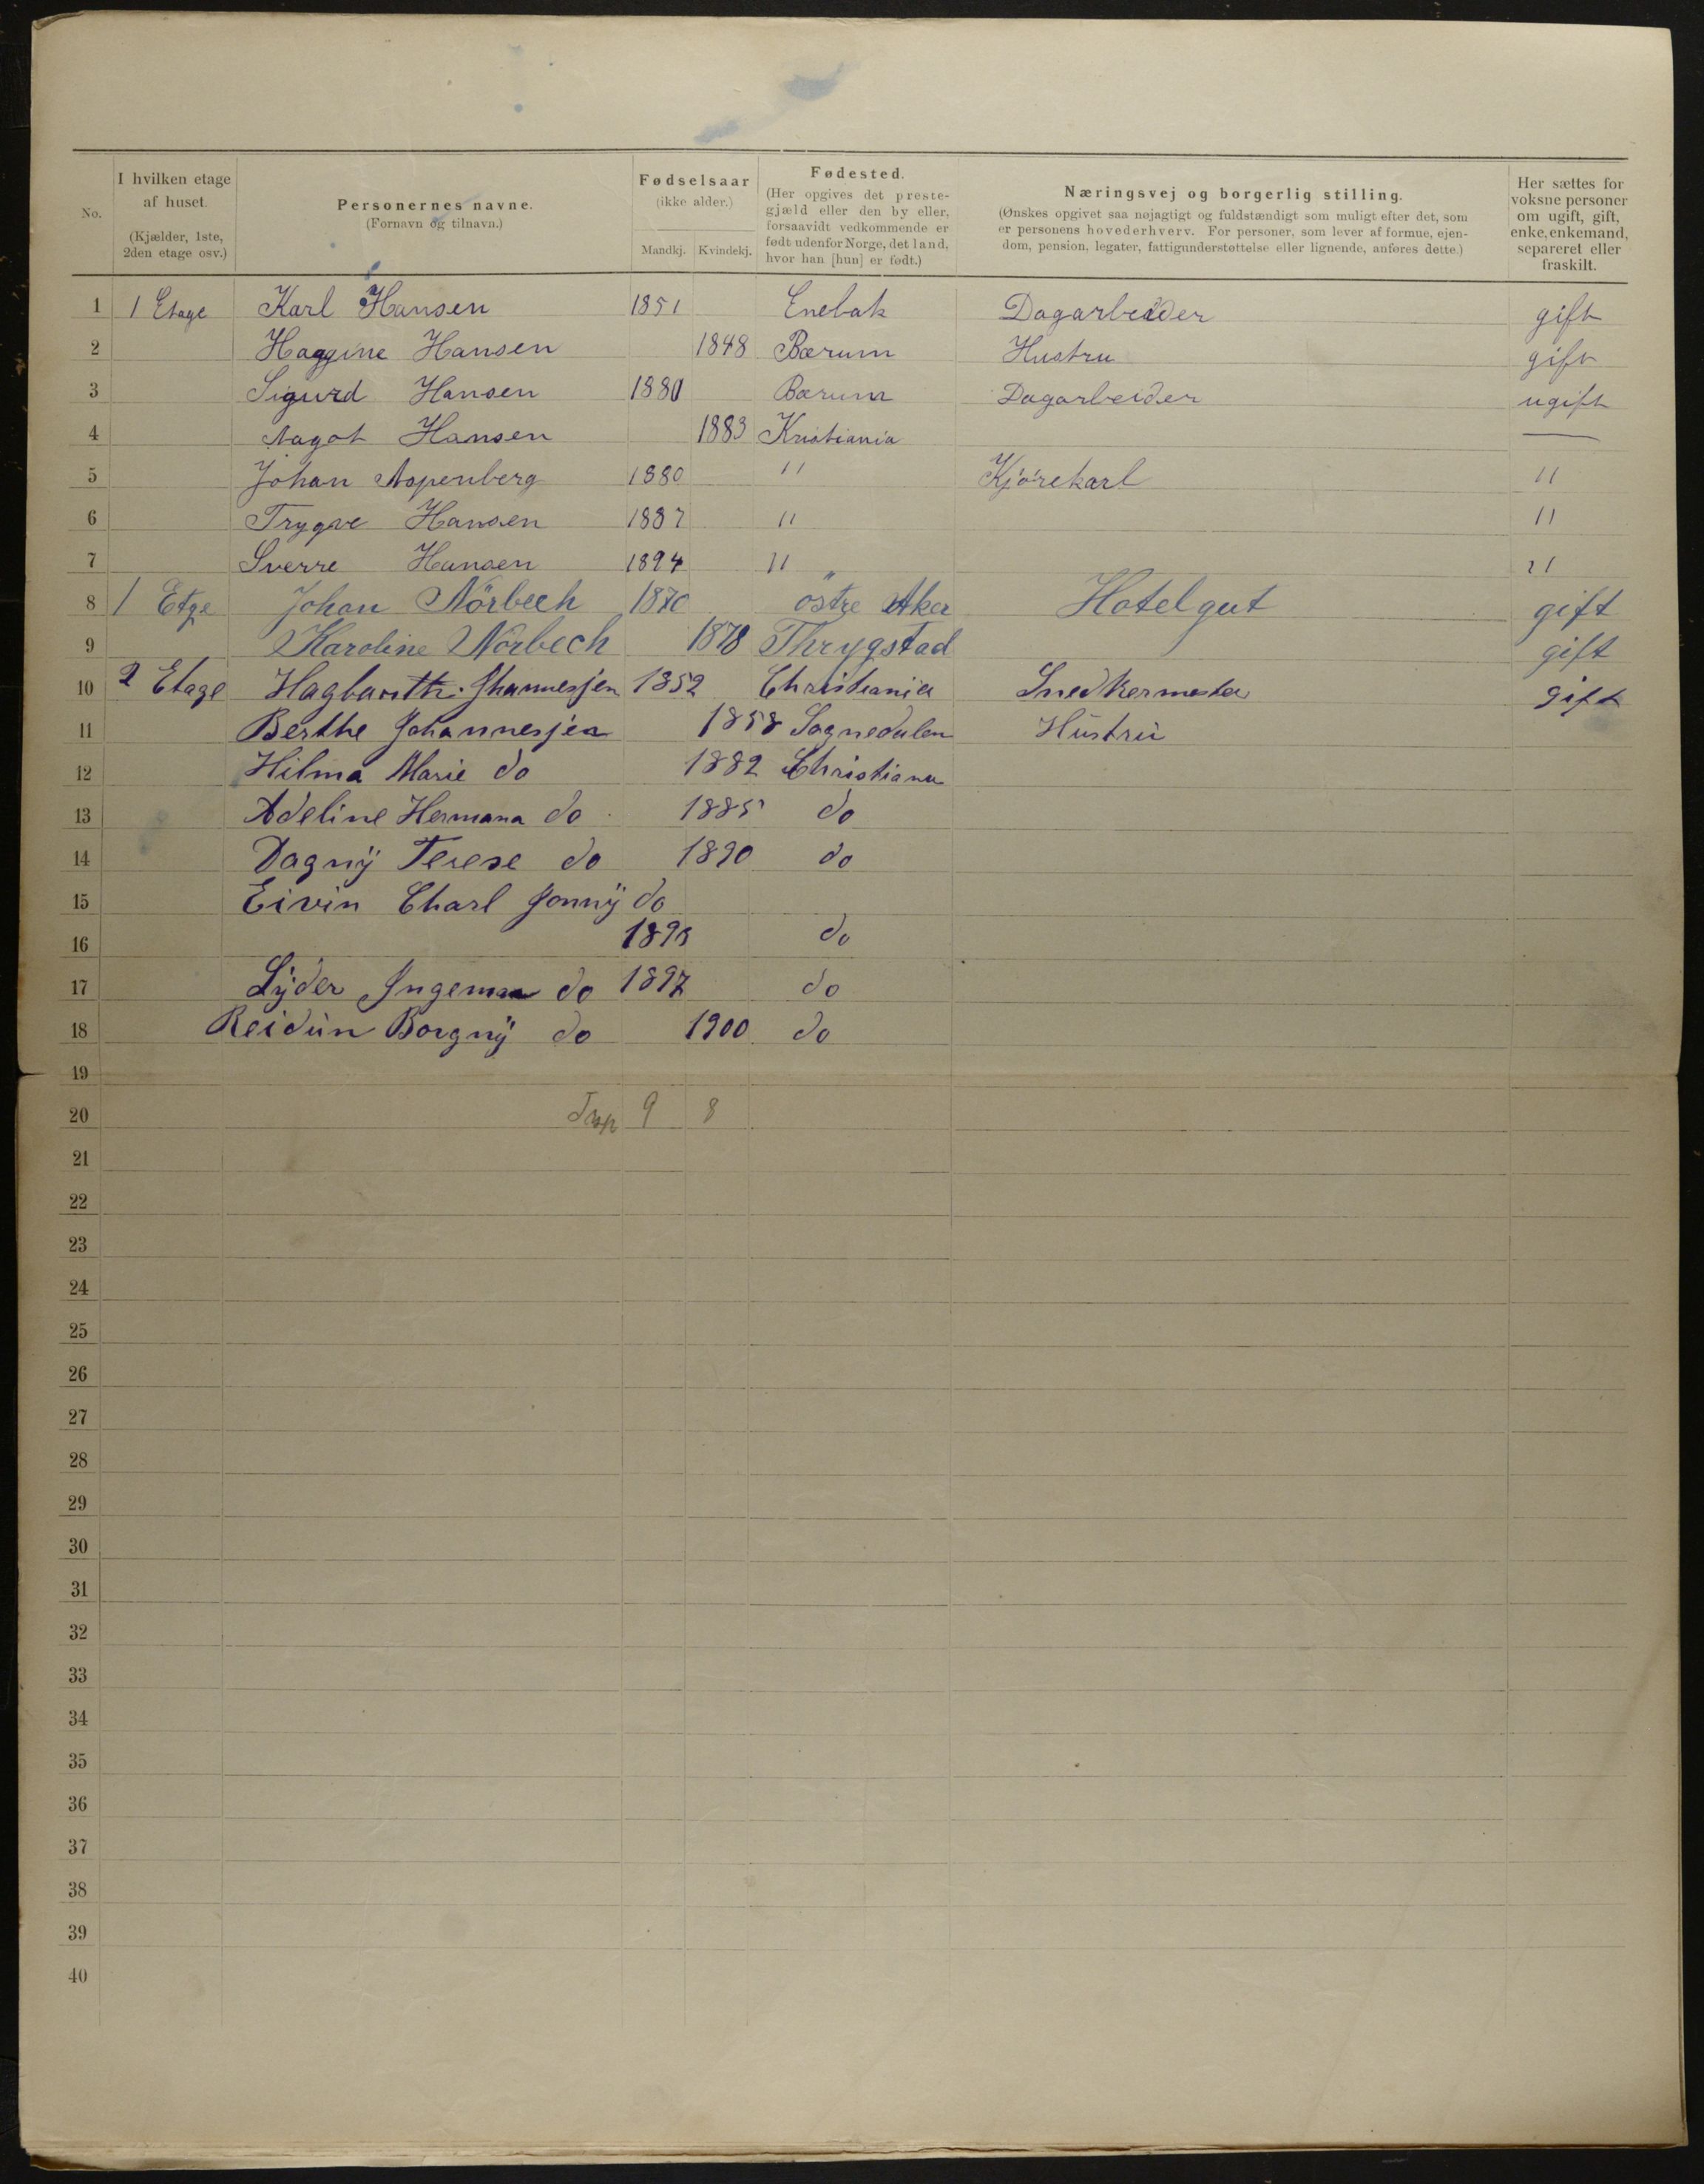 No.
I hvilken etage af huset. (Kjælder, 1ste, 2den etage osv.)
Personernes navne. (Fornavn og tilnavn.)
Fødselsaar (ikke alder.) Mandkj. Kvindekj.
Fødested. (Her opgives det prestegjæld eller den by eller, forsaavidt vedkommende er født udenfor Norge, det land, hvor han [hun] er født.)
Næringsvej og borgerlig stilling. (Ønskes opgivet saa nøjagtigt og fuldstændigt som muligt efter det, som er personens hovederhverv. For personer, som lever af formue, ejendom, pension, legater, fattigunderstøttelse eller lignende, anføres dette.)
Her sættes for voksne personer om ugift, gift, enke, enkemand, separeret eller fraskilt.
1 1 Etage Karl Hansen 1851 Enebak Dagarbeider gift
2 Haggine Hansen 1848 Bærum Hustru gift
3 Sigurd Hansen 1880 Bærum Dagarbeider ugift
4 Aagot Hansen 1883 Kristiania —
5 Johan Aspenberg 1880 " Kjörekarl "
6 Trygve Hansen 1887 " "
7 Sverre Hansen 1894 " "
8 1 Etge Johan Nörbech 1870 östre Aker Hotelgut gift
9 Karoline Nörbech 1878 Thrygstad gift
10 2 Etage Hagbarth Johannesjen 1852 Christiania Snedkermester gift
11 Berthe Johannesjen 1858 Sognedalen Hustru
12 Hilma Marie do 1882 Christiana
13 Adeline Hermana do 1885 do
14 Dagny Terese do 1890 do
15 Eivin Charl Jonny do
16 1895 do
17 Lyder Ingeman do 1897 do
18 Reidun Borgny do 1900 do
19
20 9 8
21
22
23
24
25
26
27
28
29
30
31
32
33
34
35
36
37
38
39
40